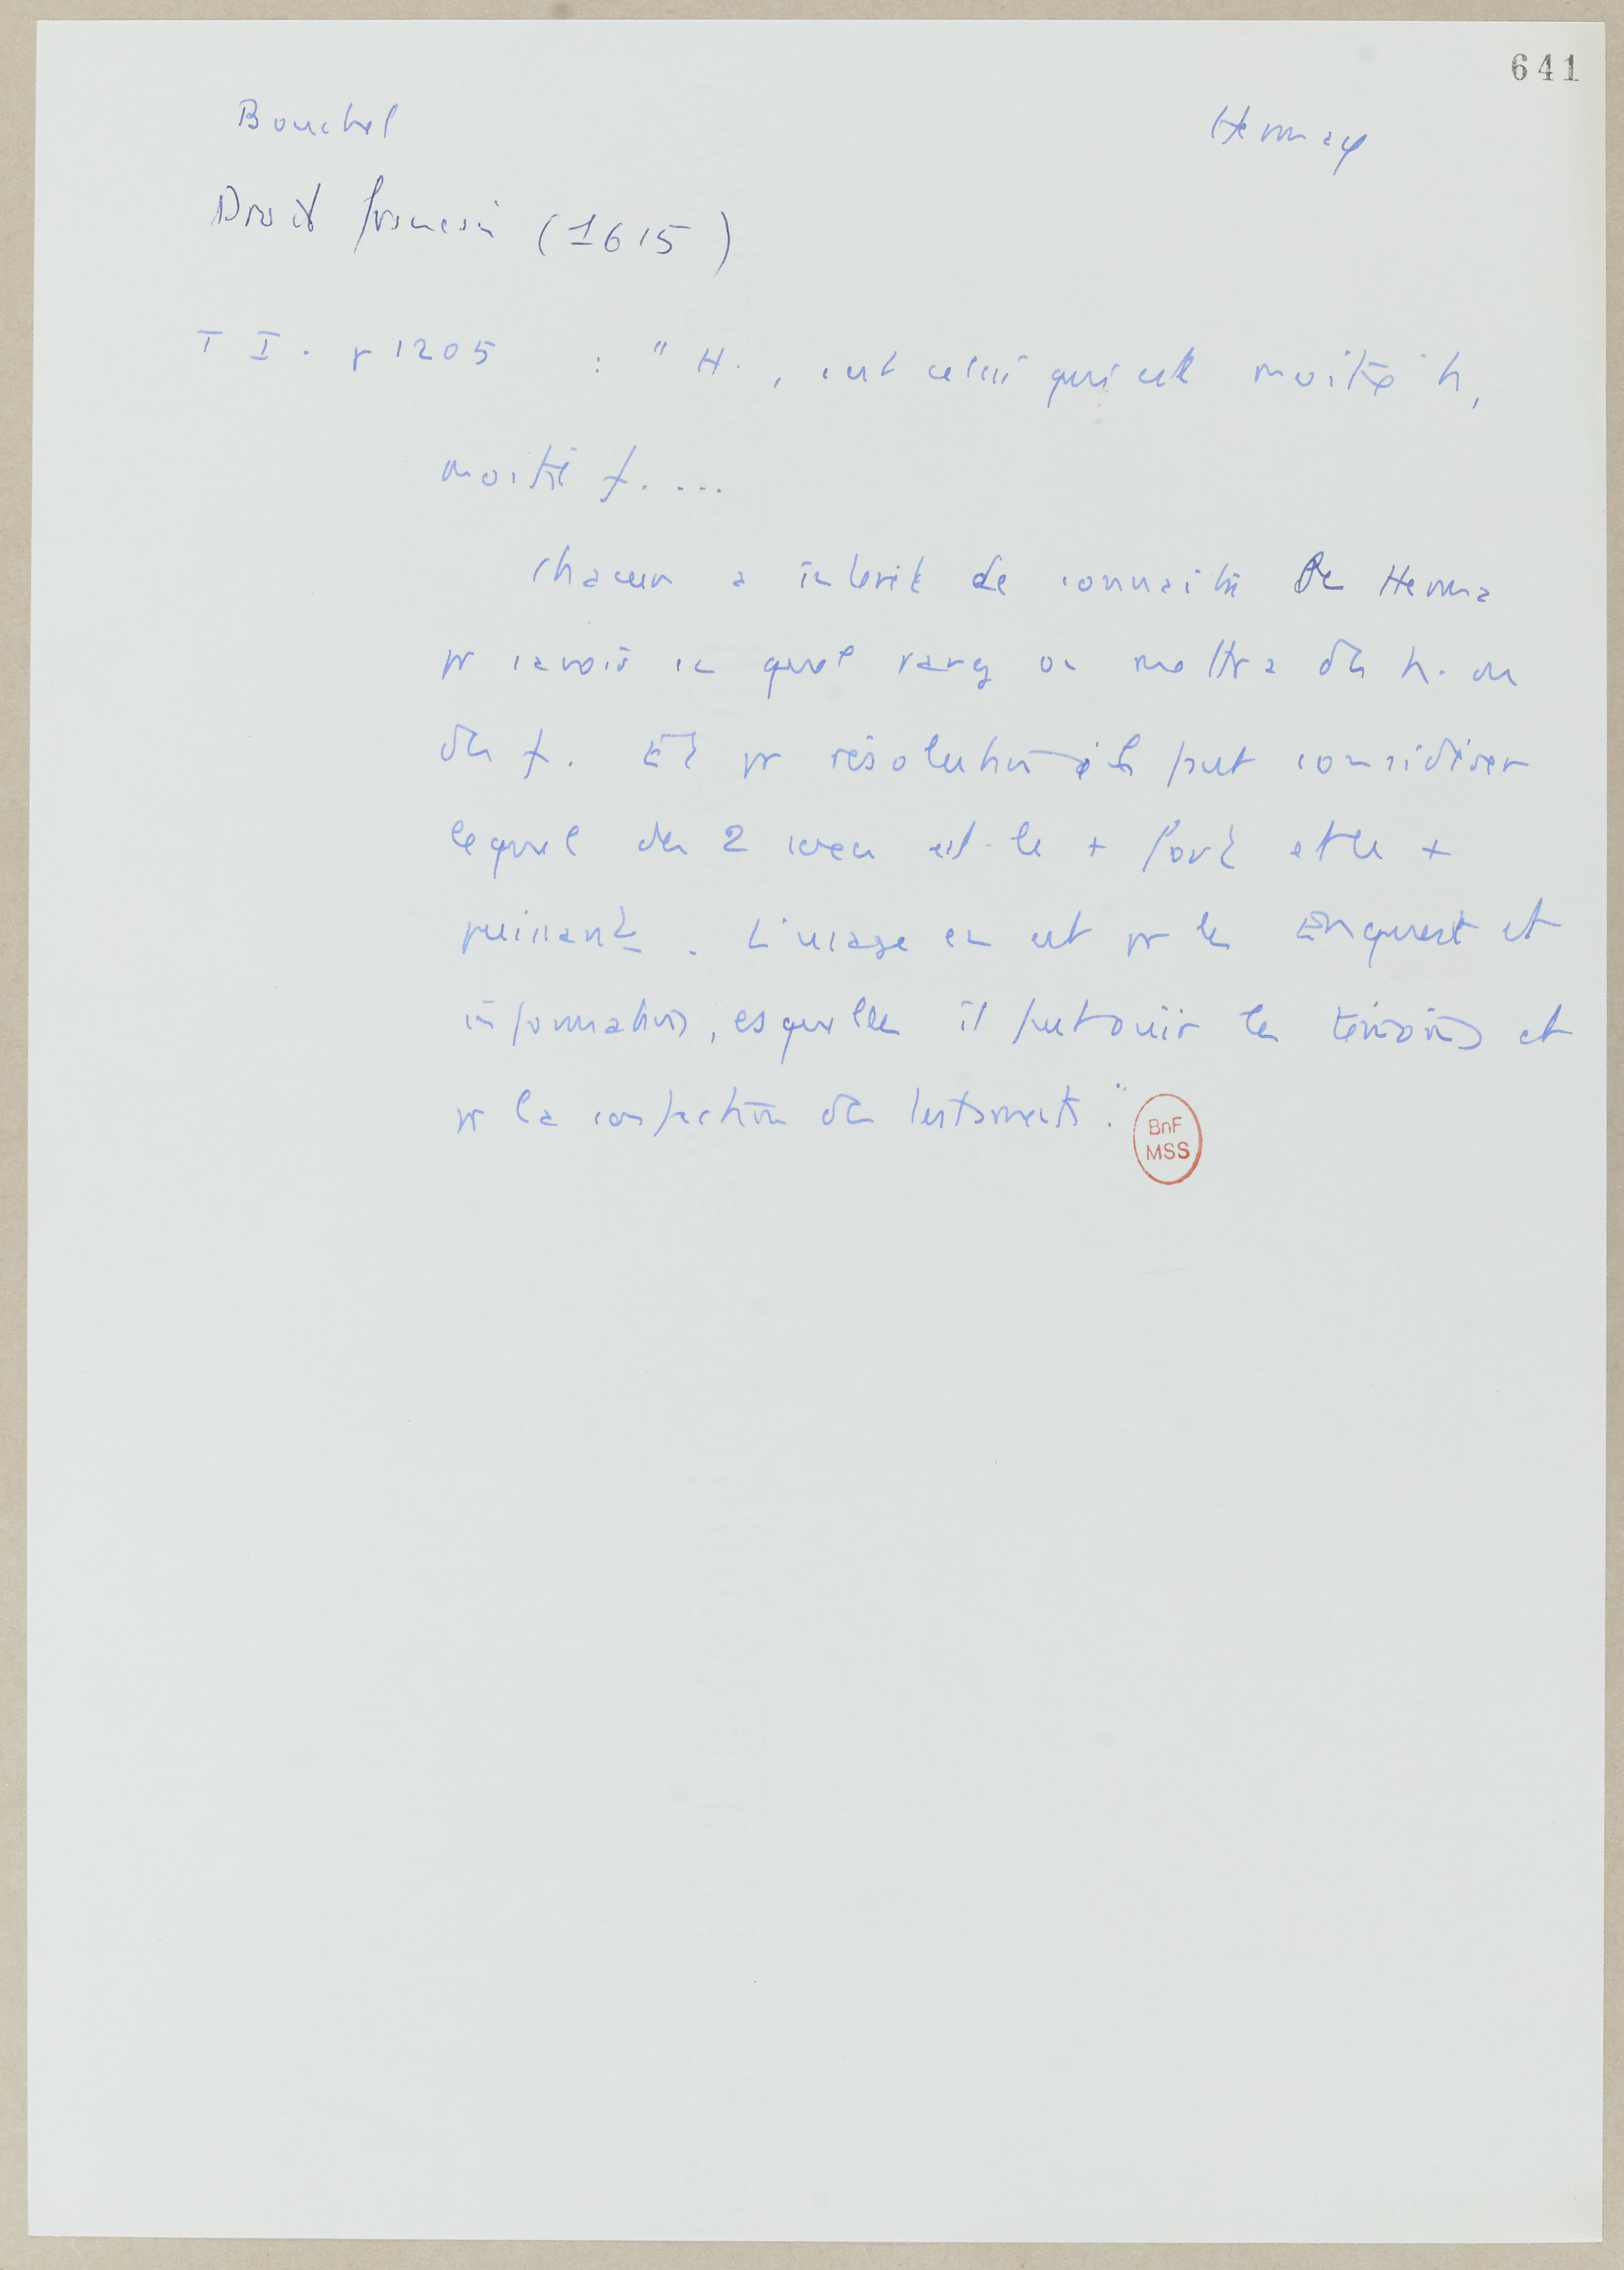 641
Bouchel
Hermaφ
Droit français (1615)
T I. p 1205 : " H., c'est celui qui est moitié h,
moitié f. ...
Chacun a intérêt de connaître de Herma
pr savoir en quel rang on mettra des h. ou
des f. Et pr résolution il faut considérer
lequel des 2 sexes est le + fort et le +
puissant. L'usage en est pr les Enquest et
informations, esquelles il faut ouir les témoins et
pr la confection des testaments."
BnF
MSS